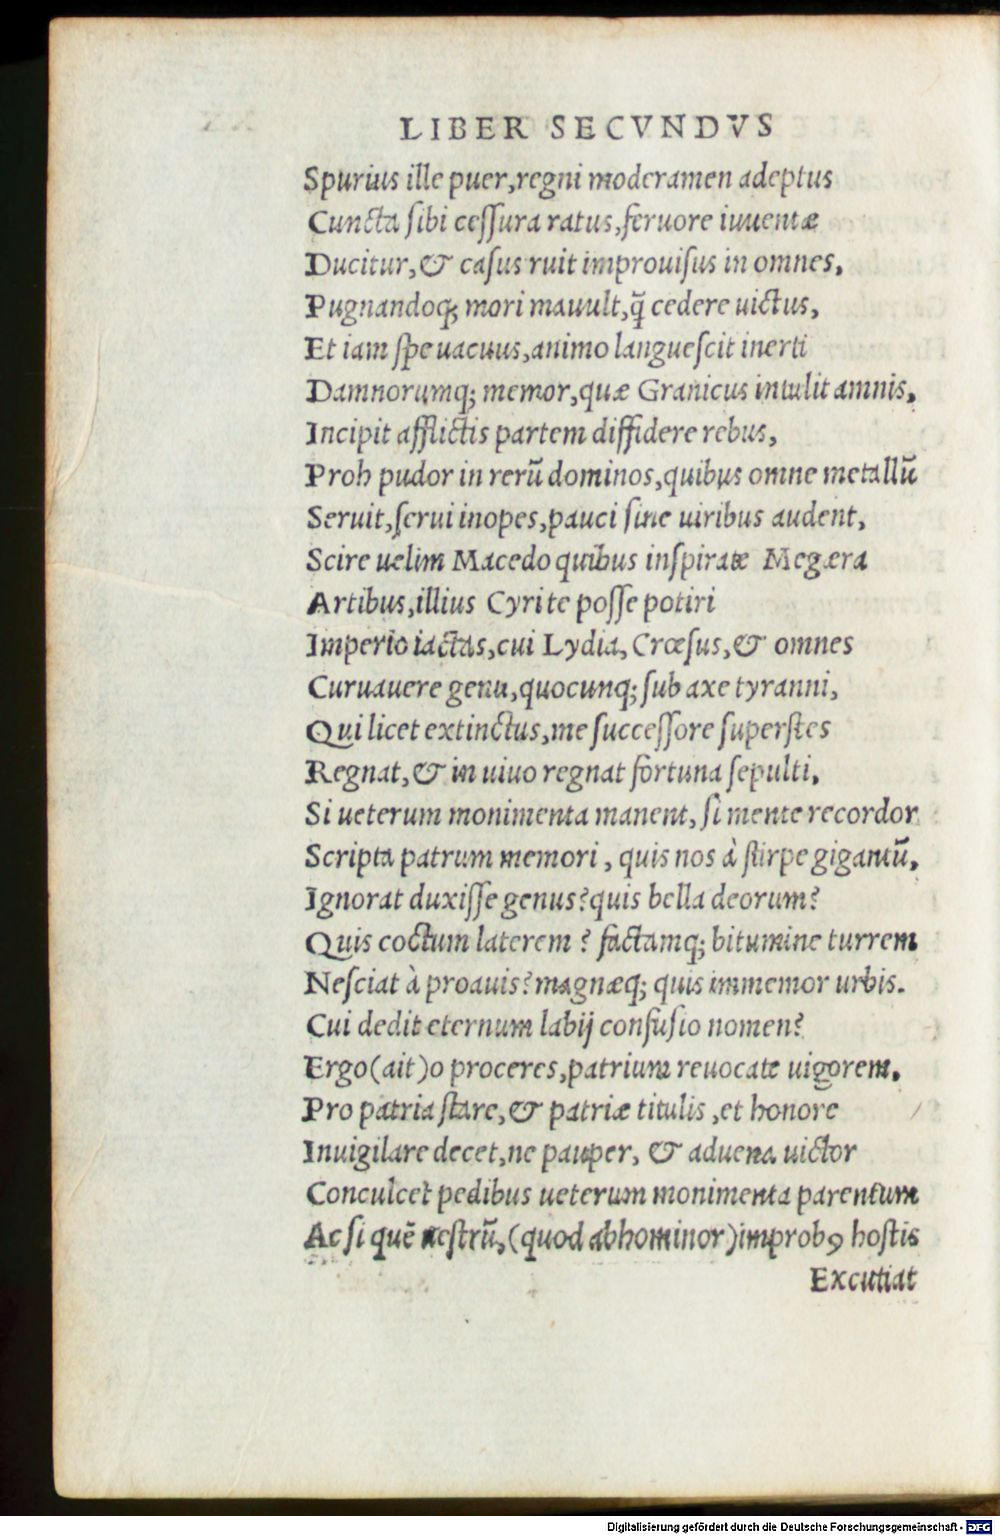 LIBER SECVNDVS
Spurius ille puer,regni moderamen adeptus
Cuncta sibi cessura ratus,feruore iuuentæ
Ducitur,& casus ruit improuisus in omnes,
Pugnandoq; mori mauult,q̃ cedere uictus,
Et iam spe uacuus,animo languescit inerti
Damnorumq; memor,quæ Granicus intulit amnis,
Incipit afflictis partem diffidere rebus,
Proh pudor in rerũ dominos,quibus omne metallũ
Seruit,serui inopes,pauci sine uiribus audent,
Scire uelim Macedo quibus inspirate Megæra
Artibus,illius Cyri te posse potiri
Imperio iactas,cui Lydia, Crœsus,& omnes
Curuauere genu,quocunq; sub axe tyranni,
Qui licet extinctus,me successore superstes
Regnat,& in uiuo regnat fortuna sepulti,
Si ueterum monimenta manent, si mente recordor
Scripta patrum memori, quis nos à stirpe gigantũ,
Ignorat duxisse genus?quis bella deorum?
Quis coctum laterem ? factamq; bitumine turrem
Nesciat à proauis?magnæq; quis immemor urbis.
Cui dedit eternum labij confusio nomen?
Ergo(ait)o proceres,patrium reuocate uigorem,
Pro patria stare,& patriæ titulis ,et honore
Inuigilare decet,ne pauper, & aduena uictor
Conculcet pedibus ueterum monimenta parentum
Ac si quẽ nestrũ,(quod abhominor)improbꝯ hostis
Excutiat
Digitalisierung gefördert durch die Deutsche Forschungsgemeinschaft - DFG